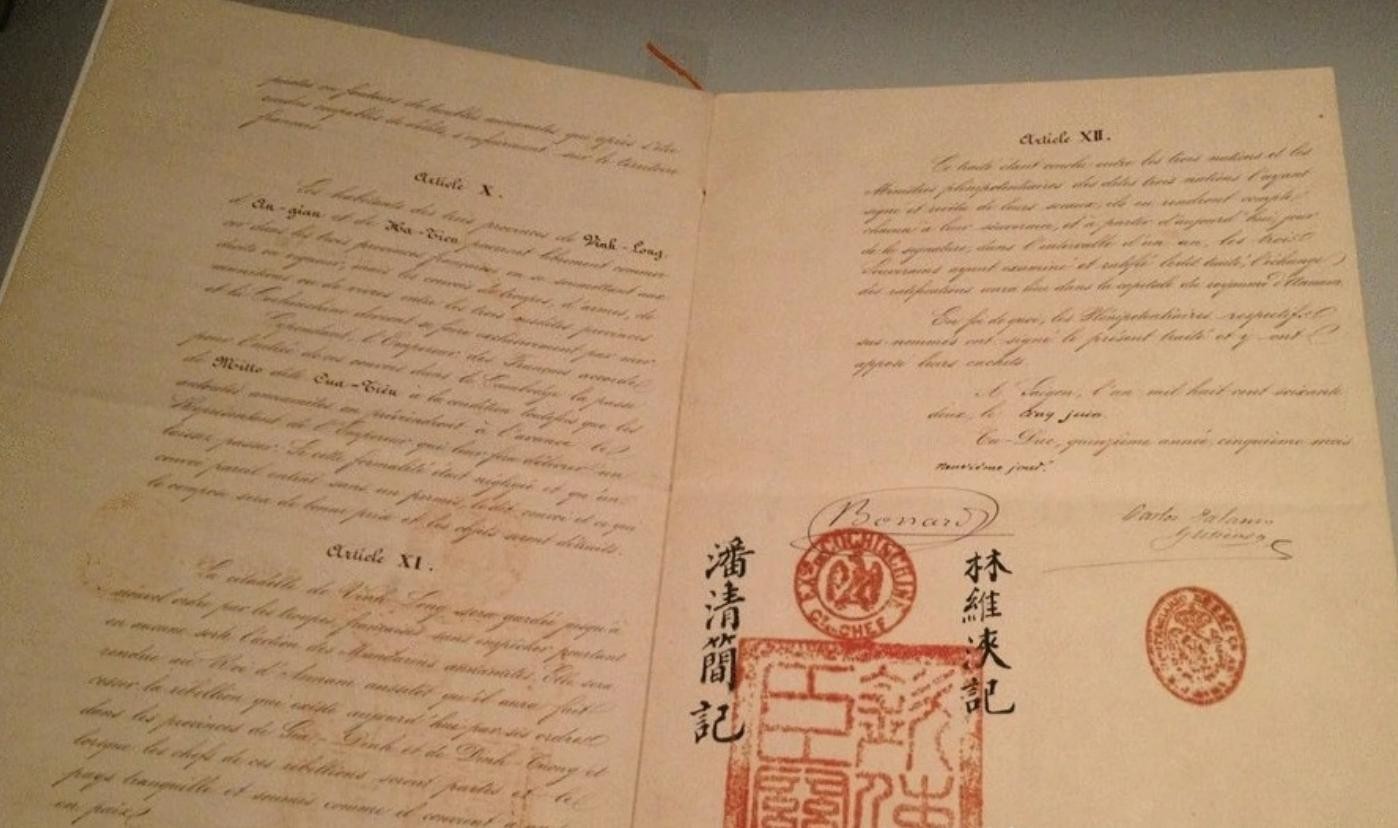 coupables de délits, s'enfuiraient sur le territoire
français.
Article X.
Les habitants des trois provinces de Vinh-Long,
d'An-gian et de Ha-Tien pourront librement commer-
cer dans les trois provinces françaises en se soumettant aux
droits en vigueur, mais les convois de troupes, d'armes, de
munitions ou de vivres entre les trois susdites provinces
et la Cochinchine devront se faire exclusivement par mer
Cependant, l'Empereur des Français accorde
pour l'entrée de ces convois dans le Cambodge la passe
de Mitto dite Cua-Tiêu à la condition toutefois que les
autorités annamites en préviendront à l'avance le
Représentant de l'Empereur qui leur fera délivrer un
laissez passer. Si cette formalité était négligée et qu'un
convoi pareil entrât sans un permis, ledit convoi et ce qui
le compose sera de bonne prise et les objets seront détruits.
Article XI.
La citadelle de Vinh-Long sera gardée jusqu'à
nouvel ordre par les troupes françaises sans empêcher pourtant
en aucune sorte l'action des Mandarins annamites. Elle sera
rendue au Roi d'Annam aussitôt qu'il aura fait
cesser la rébellion qui existe aujourd'hui par ses ordres
dans les provinces de Gia-Dinh et de Dinh-Tuong et
lorsque les chefs de ces rébellions seront partis et le
pays tranquille et soumis comme il convient à un
en paix
Article XII.
Ce traité étant conclu entre les trois nations et les
Ministres plénipotentiaires des dites trois nations l'ayant
signé et revêtu de leurs sceaux, ils en rendront compte
chacun à leur souverain, et à partir d'aujourd'hui, jour
de la signature, dans l'intervalle d'un an, les trois
Souverains ayant examiné et ratifié ledit traité, l'échange
des ratifications aura lieu dans la capitale du royaume d'Annam.
En foi de quoi, les Plénipotentiaires respectifs
sus-nommés ont signé le présent traité et y ont
apposé leurs cachets.
A Saigon, l'an mil huit cent soixante
deux, le cinq juin.
Tu-Duc, quinzième année, cinquième mois
neuvième jour.
Bonard
Carlos Palanca
Gutierrez
COCHINCHINE
CT EN CHEF
潘清簡記
林維浹記
欽